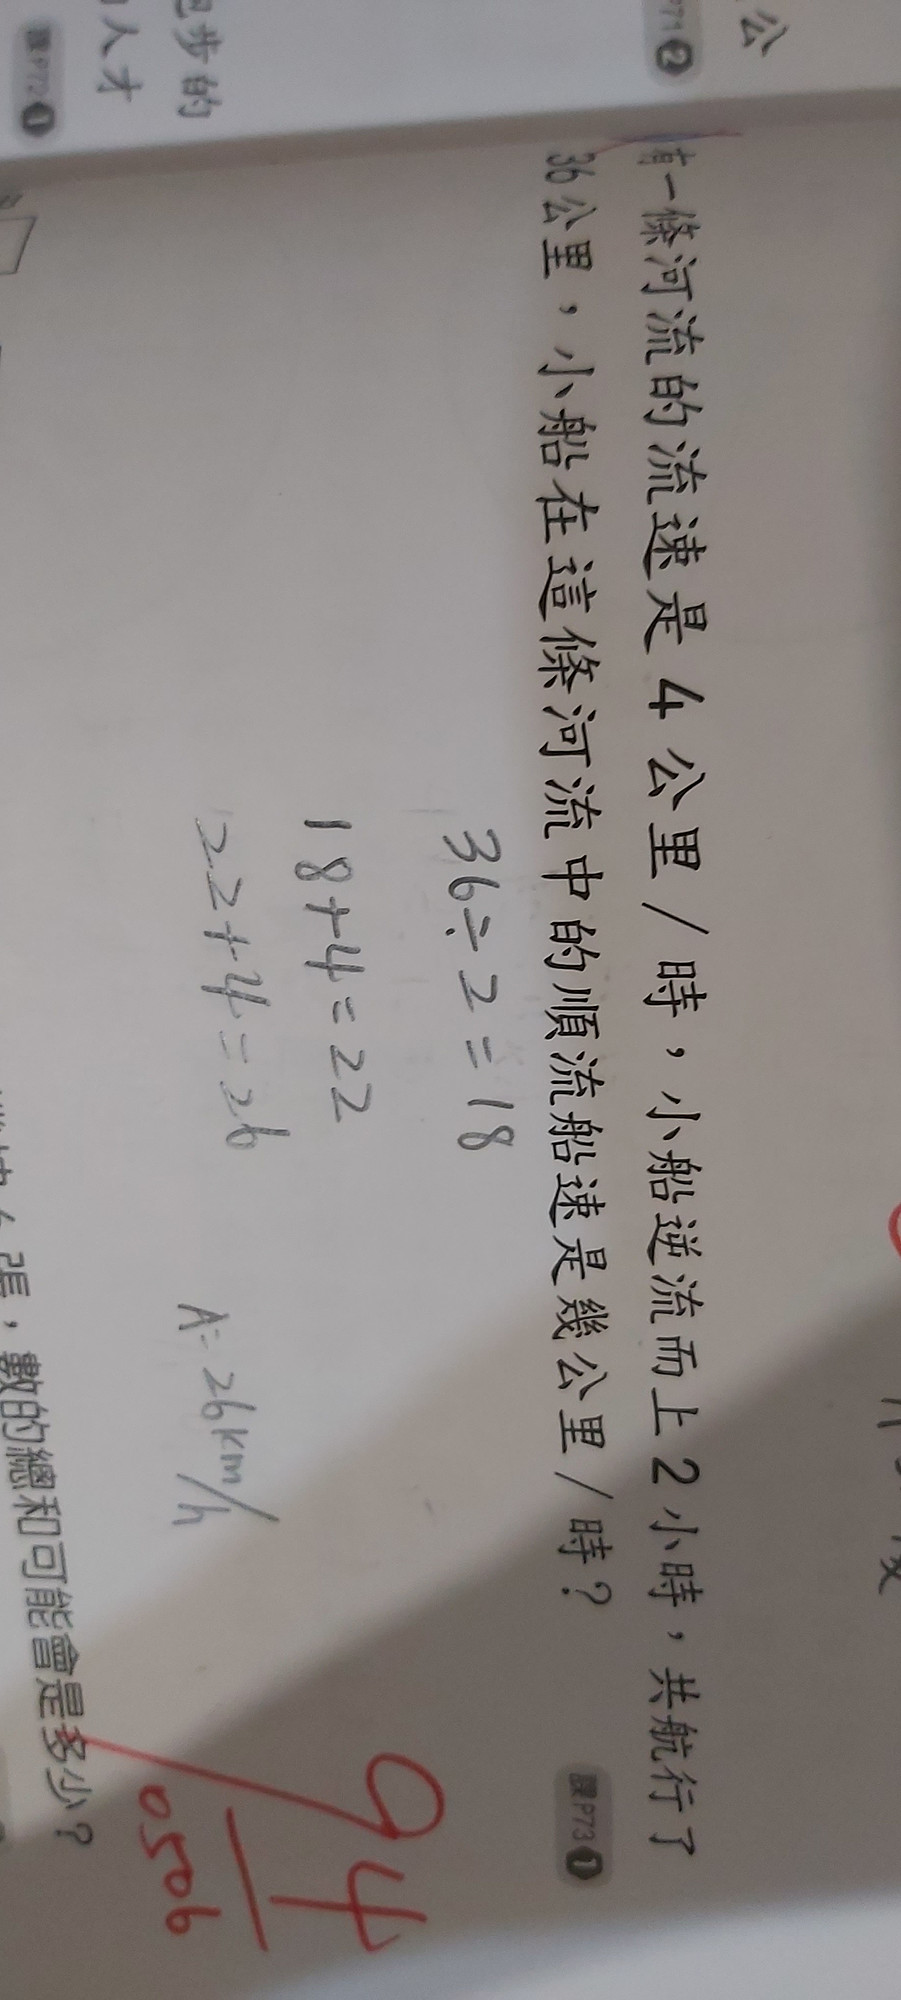 公
P71 2
跑步的
人才
課P72 1
有一條河流的流速是4公里/時，小船逆流而上2小時，共航行了
36公里，小船在這條河流中的順流船速是幾公里/時？
課P73 1
36÷2=18
18+4=22
22+4=26
A:26km/h
張，數的總和可能會是多少？
94
0506